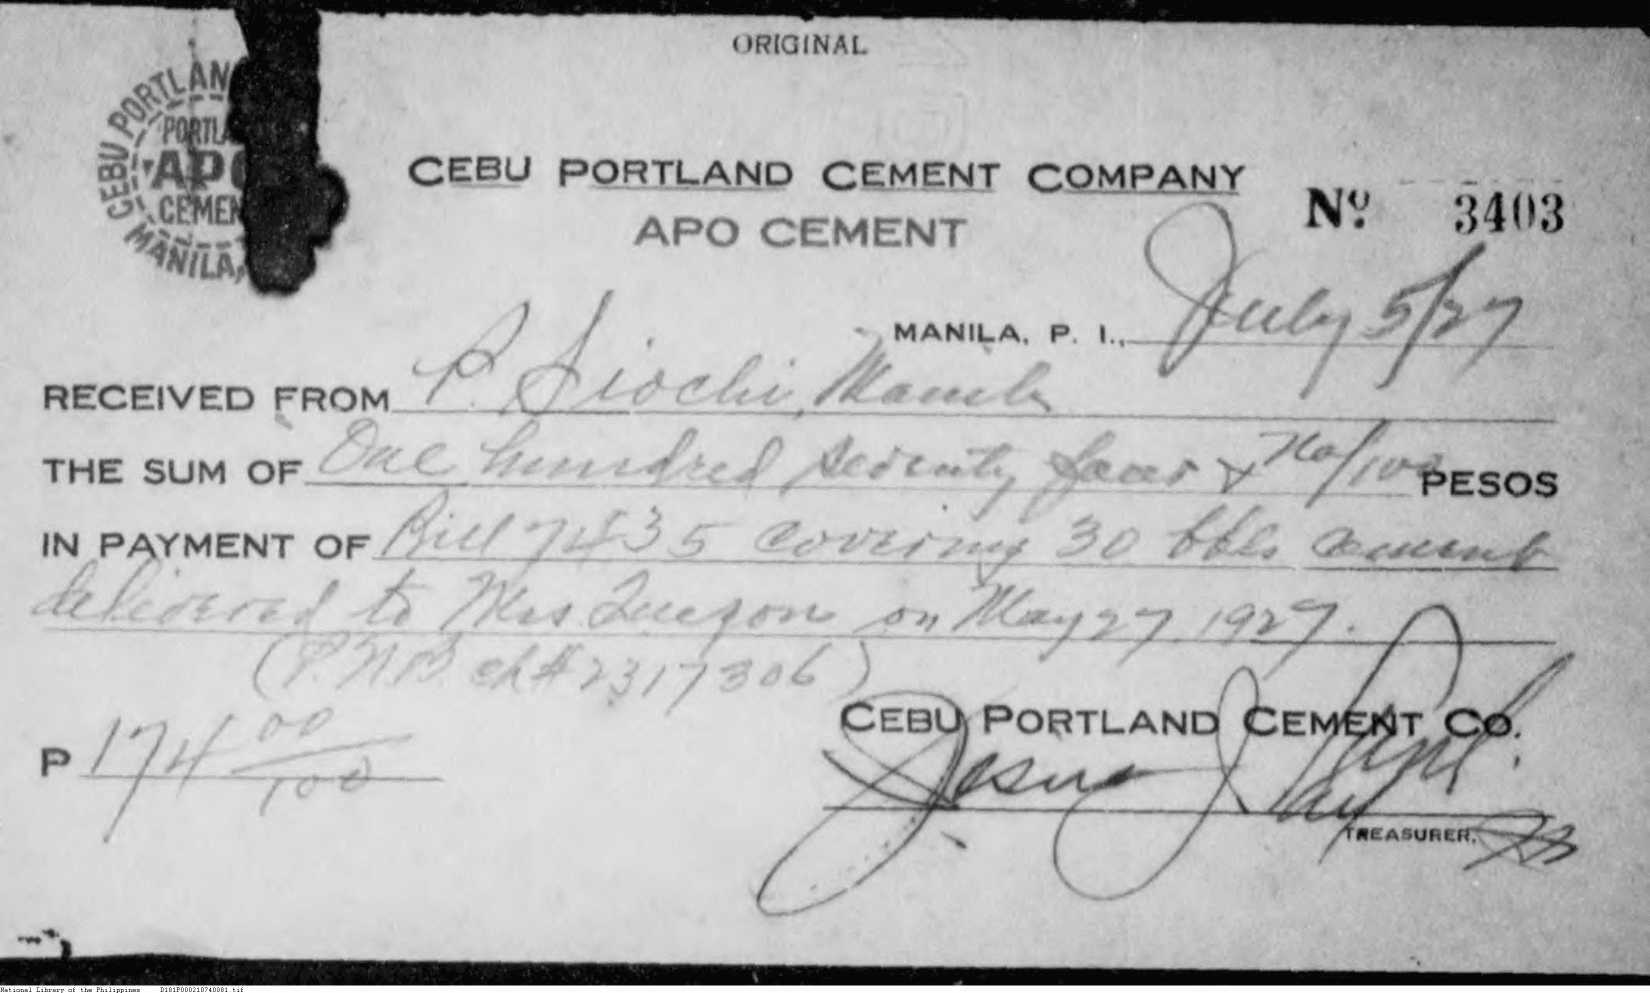 ORIGINAL
CEBU PORTLAN
PORTLA
APO
CEMEN
MANILA,
CEBU PORTLAND CEMENT COMPANY
APO CEMENT
Nº 3403
MANILA, P. I., July 5/27
RECEIVED FROM P. Siochi, Manila
THE SUM OF One hundred seventy four & No/100 PESOS
IN PAYMENT OF Bill 7435 covering 30 bbls cement
delivered to Mrs Quezon on May 27, 1927.
(P.N.B. ch# 2317306)
P 174 00/100
CEBU PORTLAND CEMENT CO.
TREASURER.
National Library of the Philippines D101P000210740001.tif